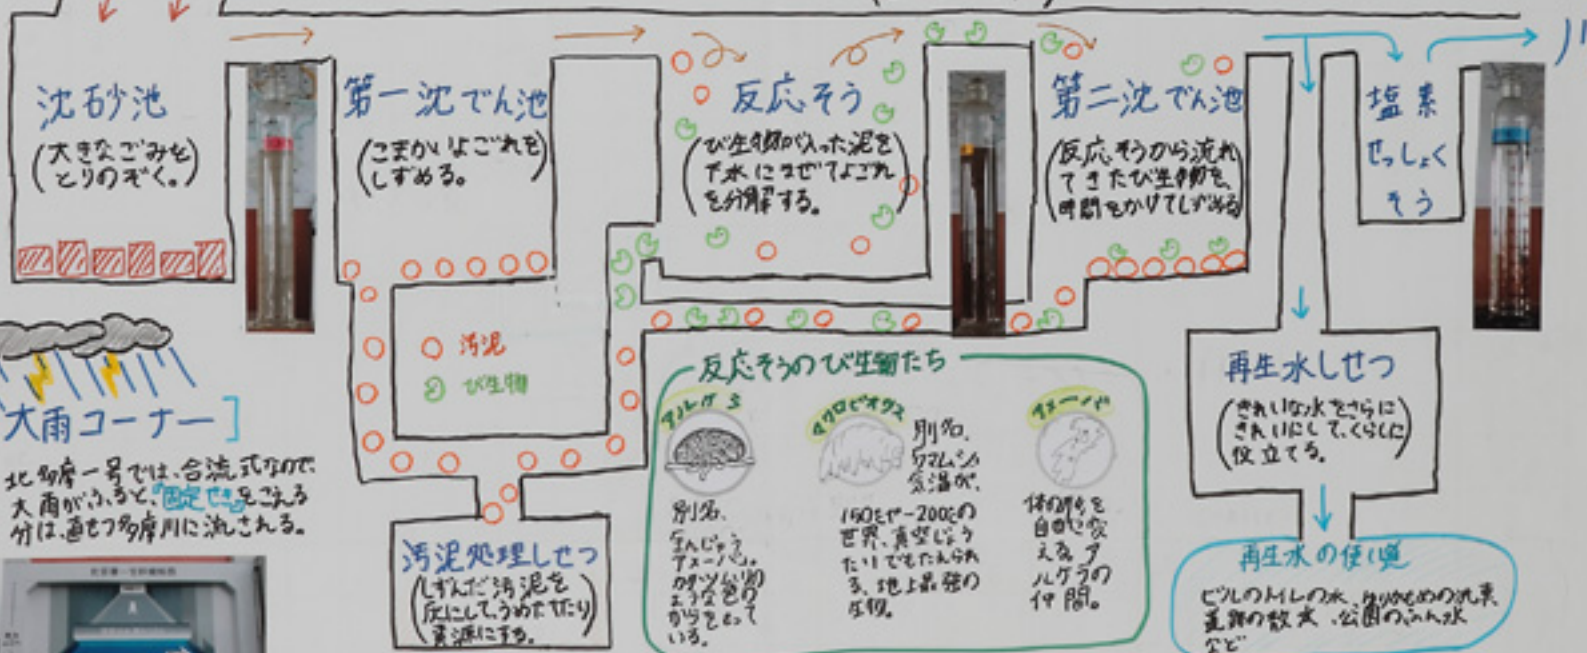 沈砂池
(大きなごみを
とりのぞく。)
第一沈でん池
(こまかいよごれを
しずめる。)
反応そう
(び生物が入った泥を
下水にまぜてよごれ
を分解する。)
第二沈でん池
(反応そうから流れ
てきたび生物を、
時間をかけてしずめる)
塩素
せっしょく
そう
川
汚泥
び生物
大雨コーナー]
北多摩一号では、合流式なので、
大雨がふると、"固定せき"をこえる
分は、直せつ多摩川に流される。
汚泥処理しせつ
(しずんだ汚泥を
灰にして、うめたてたり
資源にする。)
反応そうのび生物たち
アルケラ
別名、
アメーバ。
いる。
マクロビオツス
別名、
クマムシ。
気温が、
150℃や-200℃の
世界、真空じょう
たいでもたえられ
る、地上最強の
生物。
アメーバ
体の形を
自由に変
える。ア
ルケラの
仲間。
再生水しせつ
(きれいな水をさらに
きれいにして、くらしに
役立てる。)
再生水の使い道
ビルのトイレの水、
道路の散水、公園のふん水
など